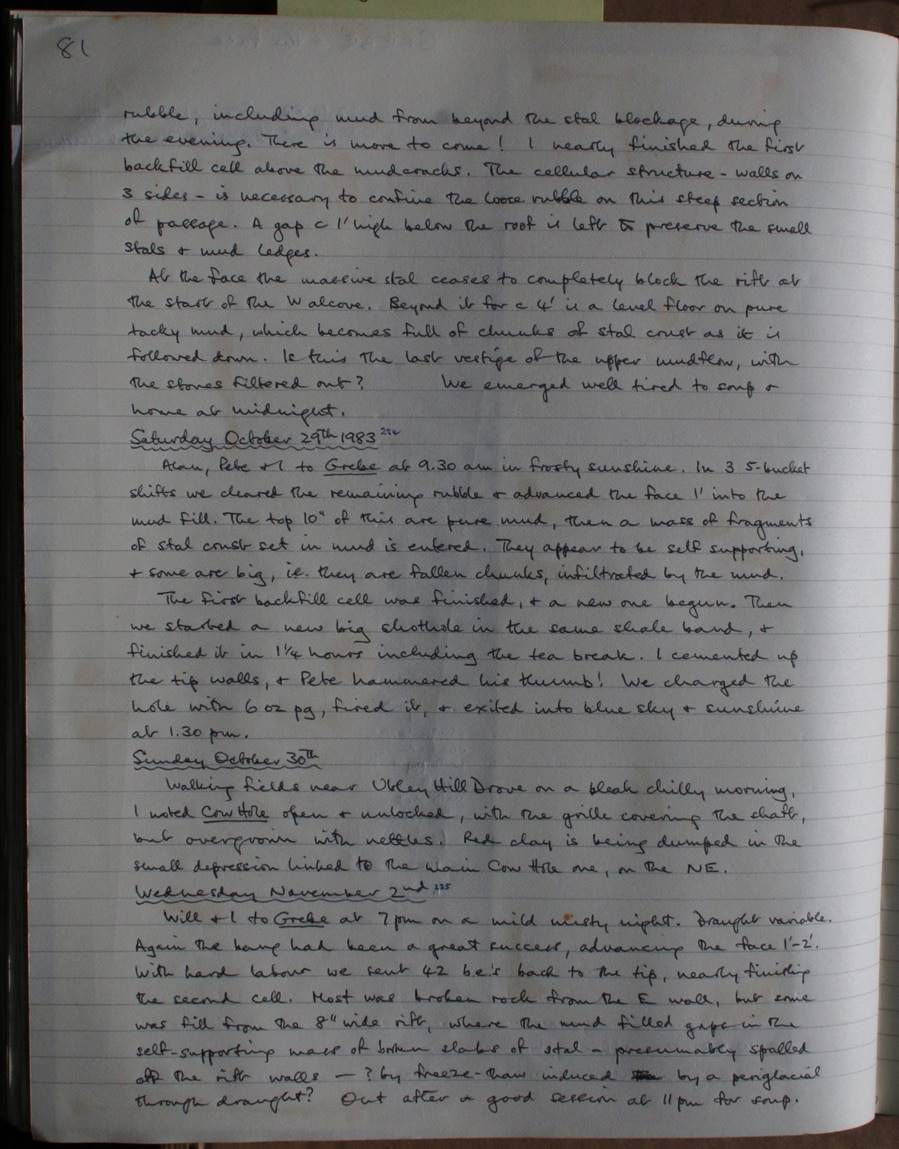 81
rubble, including mud from beyond the stal blockage, during
the evening. There is more to come! I nearly finished the first
backfill cell above the mudcracks. The cellular structure - walls on
3 sides - is necessary to confine the loose rubble on this steep section
of passage. A gap c 1' high below the roof is left to preserve the small
stals + mud ledges.
At the face the massive stal ceases to completely block the rift at
the start of the W alcove. Beyond it for c 4' is a level floor on pure
tacky mud, which becomes full of chunks of stal crust as it is
followed down. Is this the last vestige of the upper mudflow, with
the stones filtered out? We emerged well tired to soup +
home at midnight.
Saturday October 29th 1983 224
Alan, Pete + I to Grebe at 9.30 am in frosty sunshine. In 3 5-bucket
shifts we cleared the remaining rubble + advanced the face 1' into the
mud fill. The top 10" of this are pure mud, then a mass of fragments
of stal crust set in mud is entered. They appear to be self supporting,
+ some are big, ie. they are fallen chunks, infiltrated by the mud.
The first backfill cell was finished, + a new one begun. Then
we started a new big shothole in the same shale band, +
finished it in 1¼ hours including the tea break. I cemented up
the tip walls, + Pete hammered his thumb! We charged the
hole with 6 oz pg, fired it, + exited into blue sky + sunshine
at 1.30 pm.
Sunday October 30th
Walking fields near Ubley Hill Drove on a bleak chilly morning,
I noted Cow Hole open + unlocked, with the grille covering the shaft,
but overgrown with nettles. Red clay is being dumped in the
small depression linked to the main Cow Hole one, on the NE.
Wednesday November 2nd 225
Will + I to Grebe at 7 pm on a mild misty night. Draught variable.
Again the bang had been a great success, advancing the face 1'-2'.
With hard labour we sent 42 be's back to the tip, nearly finishing
the second cell. Most was broken rock from the E wall, but some
was fill from the 8" wide rift, where the mud filled gaps in the
self-supporting mass of broken slabs of stal - presumably spalled
off the rift walls - ? by freeze-thaw induced by a periglacial
through draught? Out after a good session at 11 pm for soup.